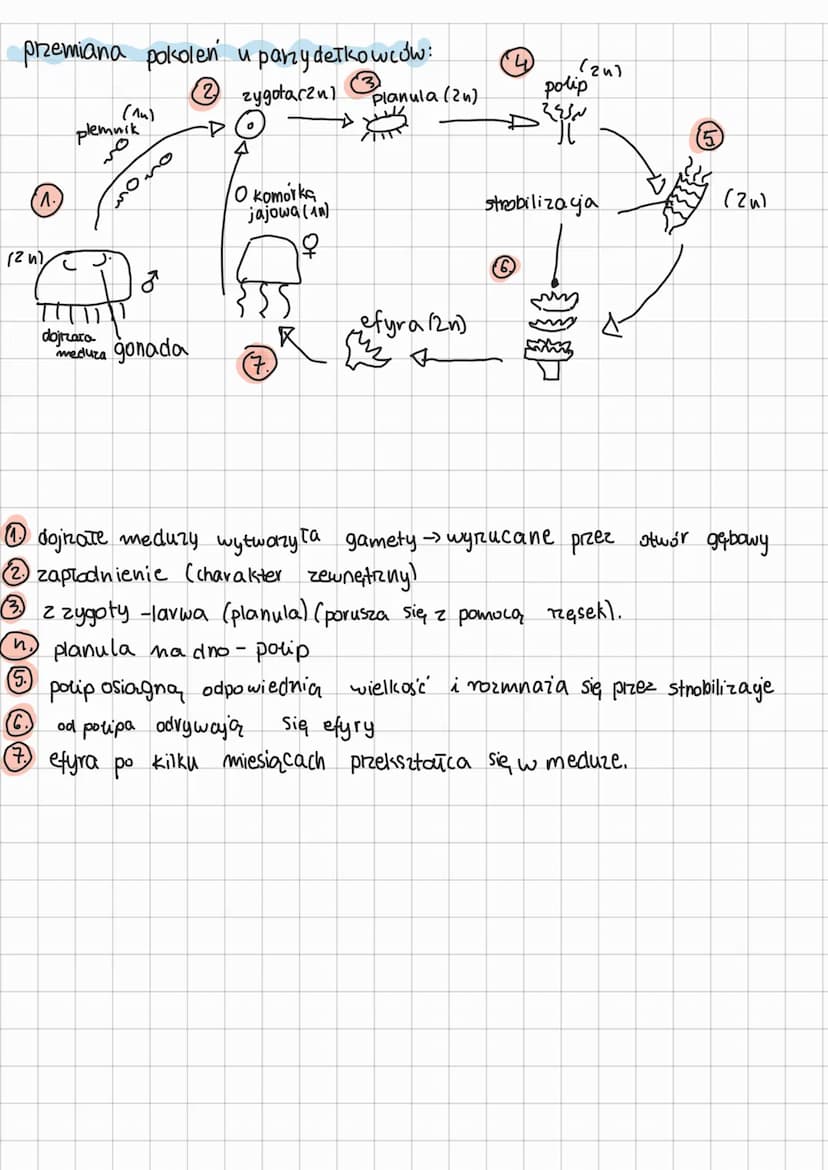 przemiana pokoleń u parzydełkowców:
4
(2n)
polip
2.
zygota(2n)
3
planula (2n)
(1n)
plemnik
5
1.
O komórka
jajowa (1n)
strobilizacja
(2n)
(2n)
♀
♂
6.
efyra (2n)
dojrzała
meduza
gonada
7.
1. dojrzałe meduzy wytworzyła gamety → wyrzucane przez otwór gębowy
2. zapłodnienie (charakter zewnętrzny)
3. z zygoty -larwa (planula) (porusza się z pomocą rzęsek).
4. planula na dno - polip
5. polip osiągną odpowiednią wielkość i rozmnaża się przez strobilizaje
6. od polipa odrywają się efyry
7. efyra po kilku miesiącach przeksształca się w meduze.